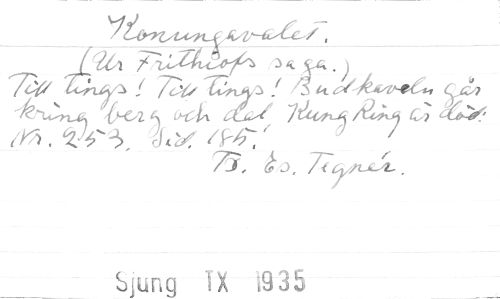 Konungavalet.
(Ur Frithiofs saga.)
Till tings! Till tings! Budkaveln går
kring berg och dal, Kung Ring är död:
Nr. 253. Sid. 185.
T. Es. Tegnér.
Sjung TX 1935